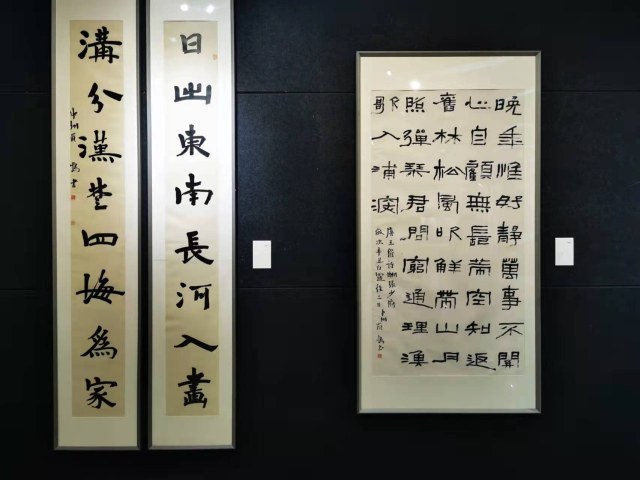 日出東南長河入畫
溝分漢楚四海爲家
晚年惟好靜萬事不關
心自顧無長策空知返
舊林松風吹解帶山月
照彈琴君問窮通理漁
歌入浦深
唐王維詩酬張少府